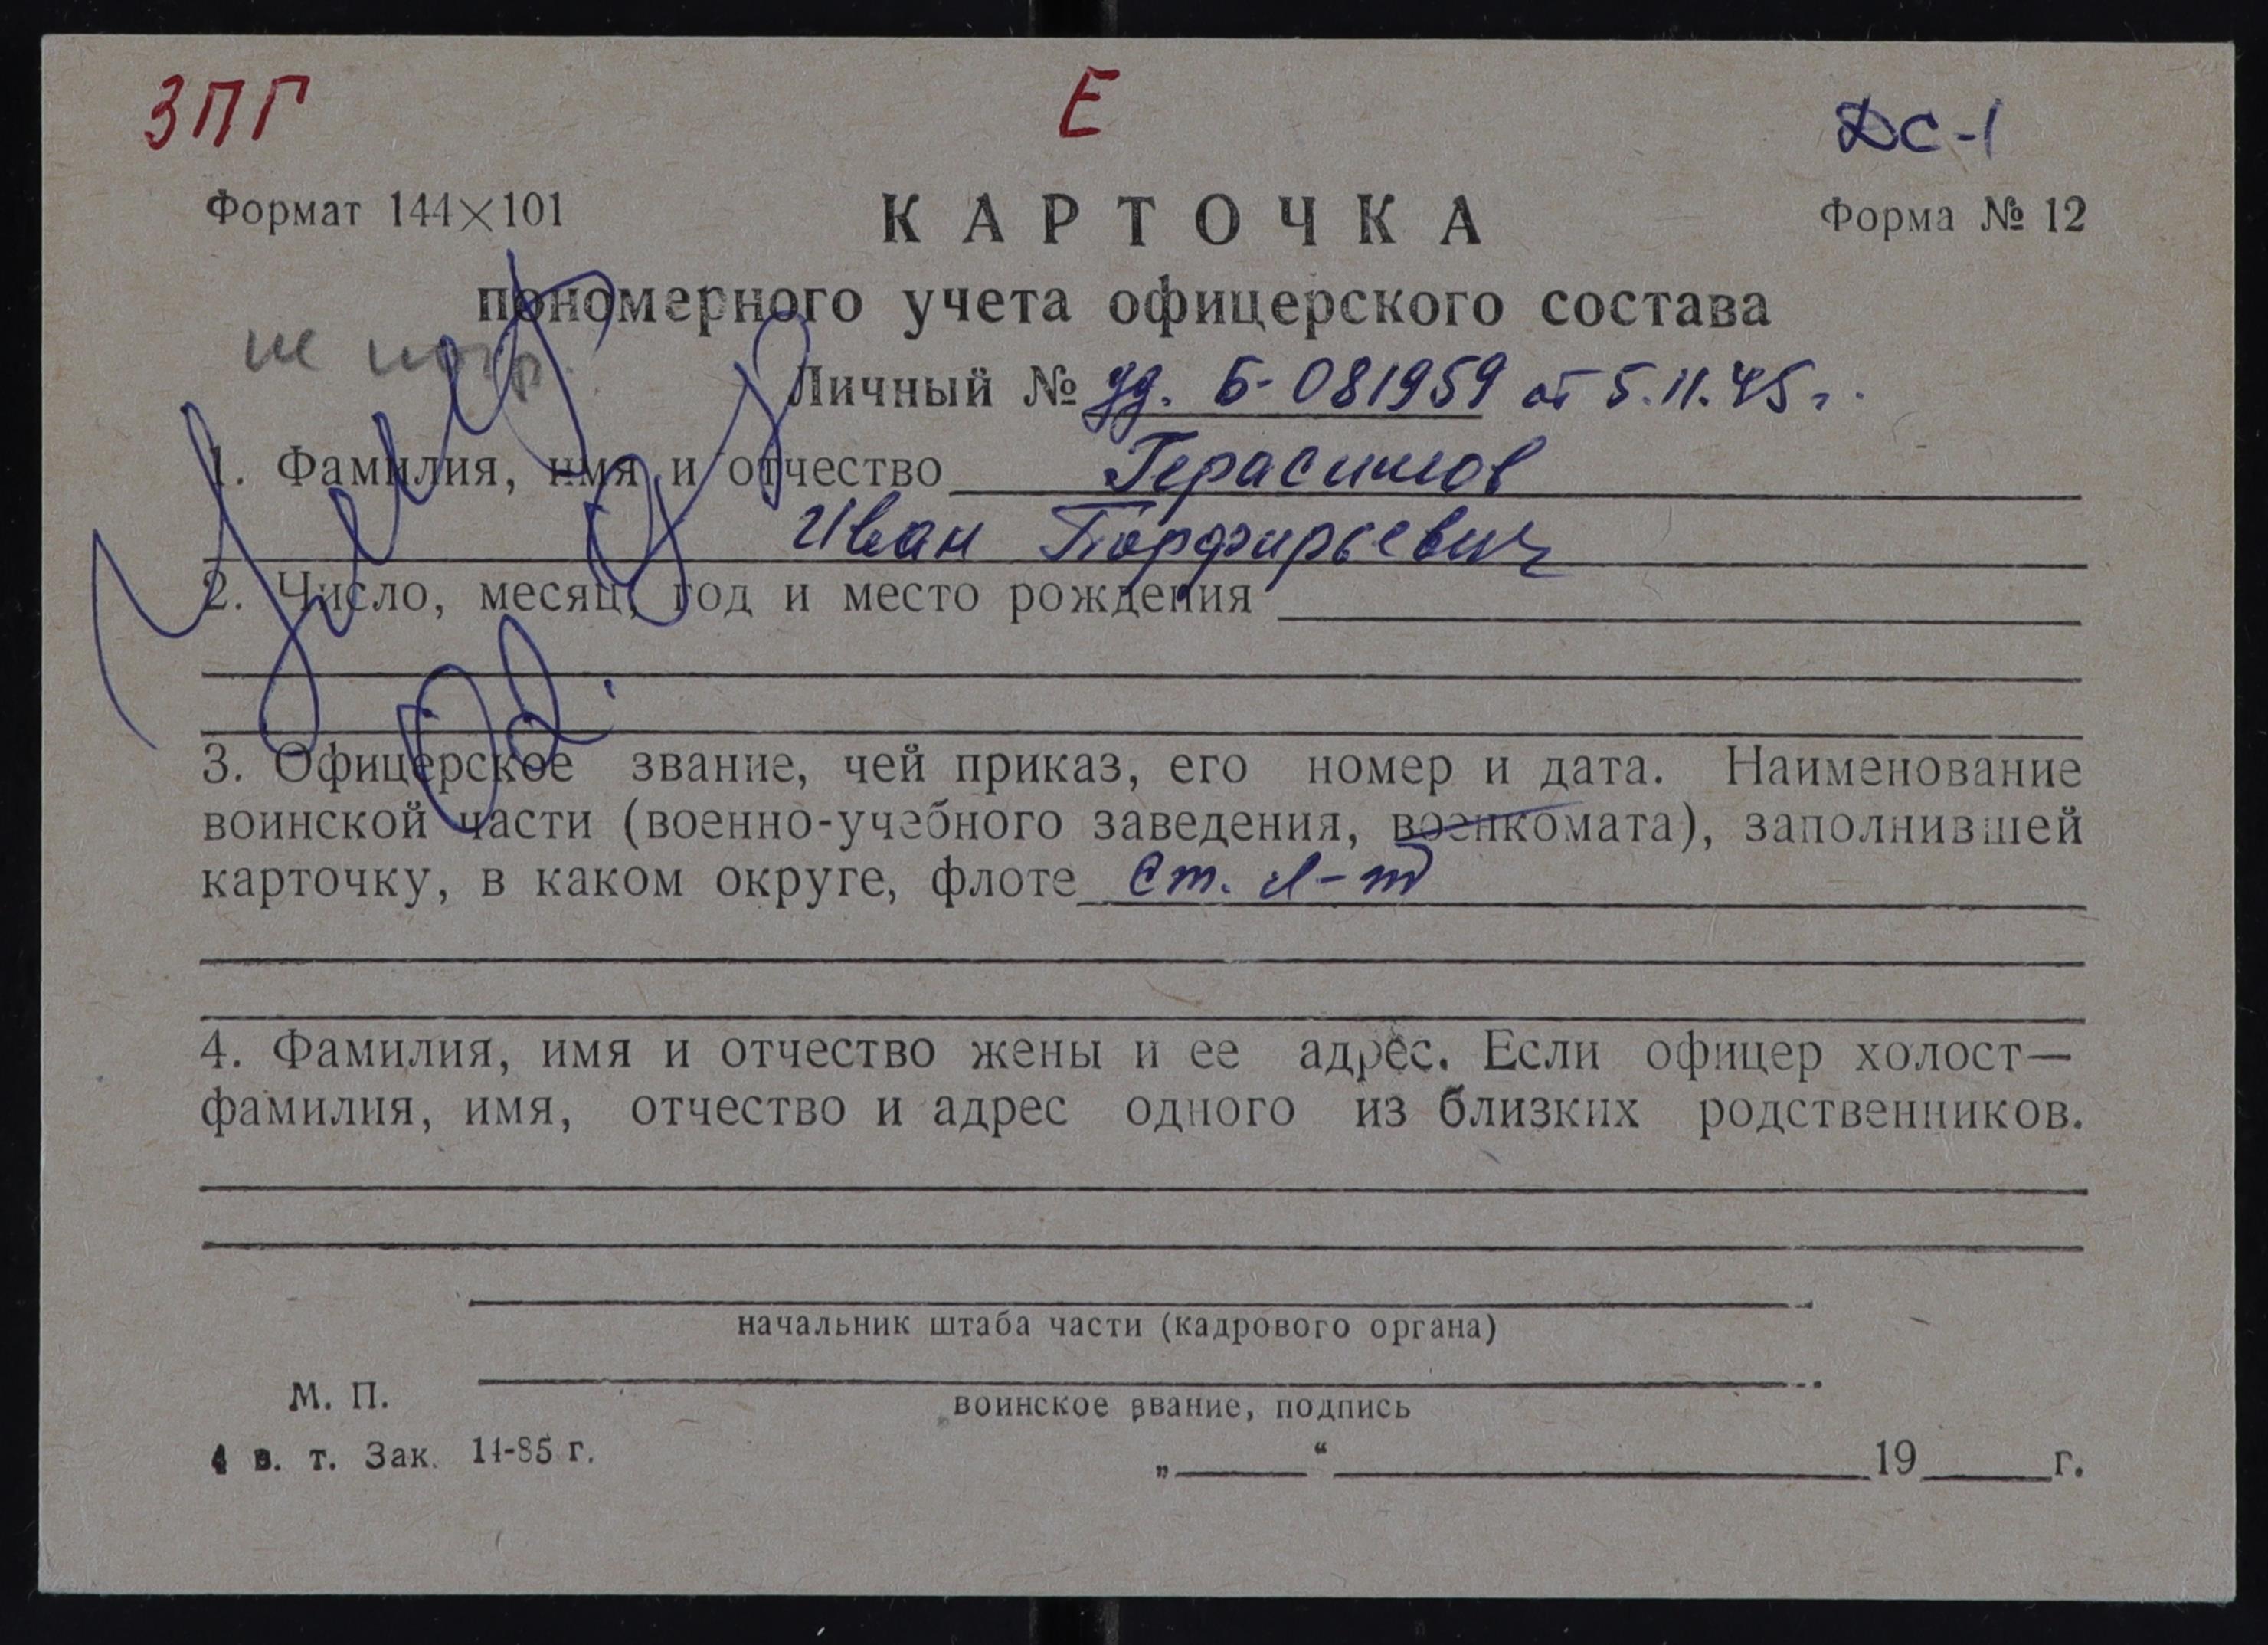 ЗПГ Е ДС-1
Формат 144×101 КАРТОЧКА Форма № 12
пономерного учета офицерского состава
не
Личный № уд. Б-081959 от 5.11.45 г.
1. Фамилия, имя и отчество Герасимов
Иван Порфирьевич
2. Число, месяц, год и место рождения
3. Офицерское звание, чей приказ, его номер и дата. Наименование
воинской части (военно-учебного заведения, военкомата), заполнившей
карточку, в каком округе, флоте ст. л-т
4. Фамилия, имя и отчество жены и ее адрес. Если офицер холост—
фамилия, имя, отчество и адрес одного из близких родственников.
начальник штаба части (кадрового органа)
М. П.
воинское звание, подпись
4 в. т. Зак. 14-85 г.
„ “ 19 г.